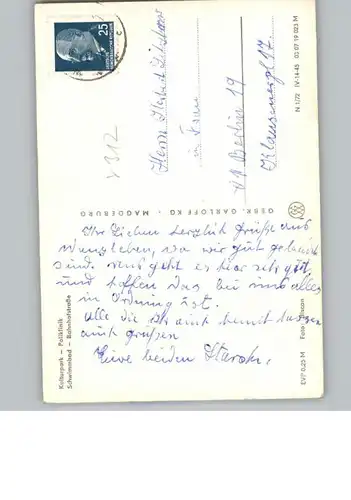 Kulturpark – Poliklinik
Schwimmbad – Bahnhofstraße
Ihr Lieben herzlich Grüße aus
Wanzleben, wo wir gut gelandet
sind. uns geht es hier sehr gut,
und hoffen das bei uns alles
in Ordnung ist.
alle die
auch grüßen
Eure beiden
GEBR. GARLOFF KG · MAGDEBURG
25
V 312
Herrn Herbert
u Frau
Berlin 19
17
EVP 0,25 M
N 1/72 IV-14-45 03 07 19 023 M